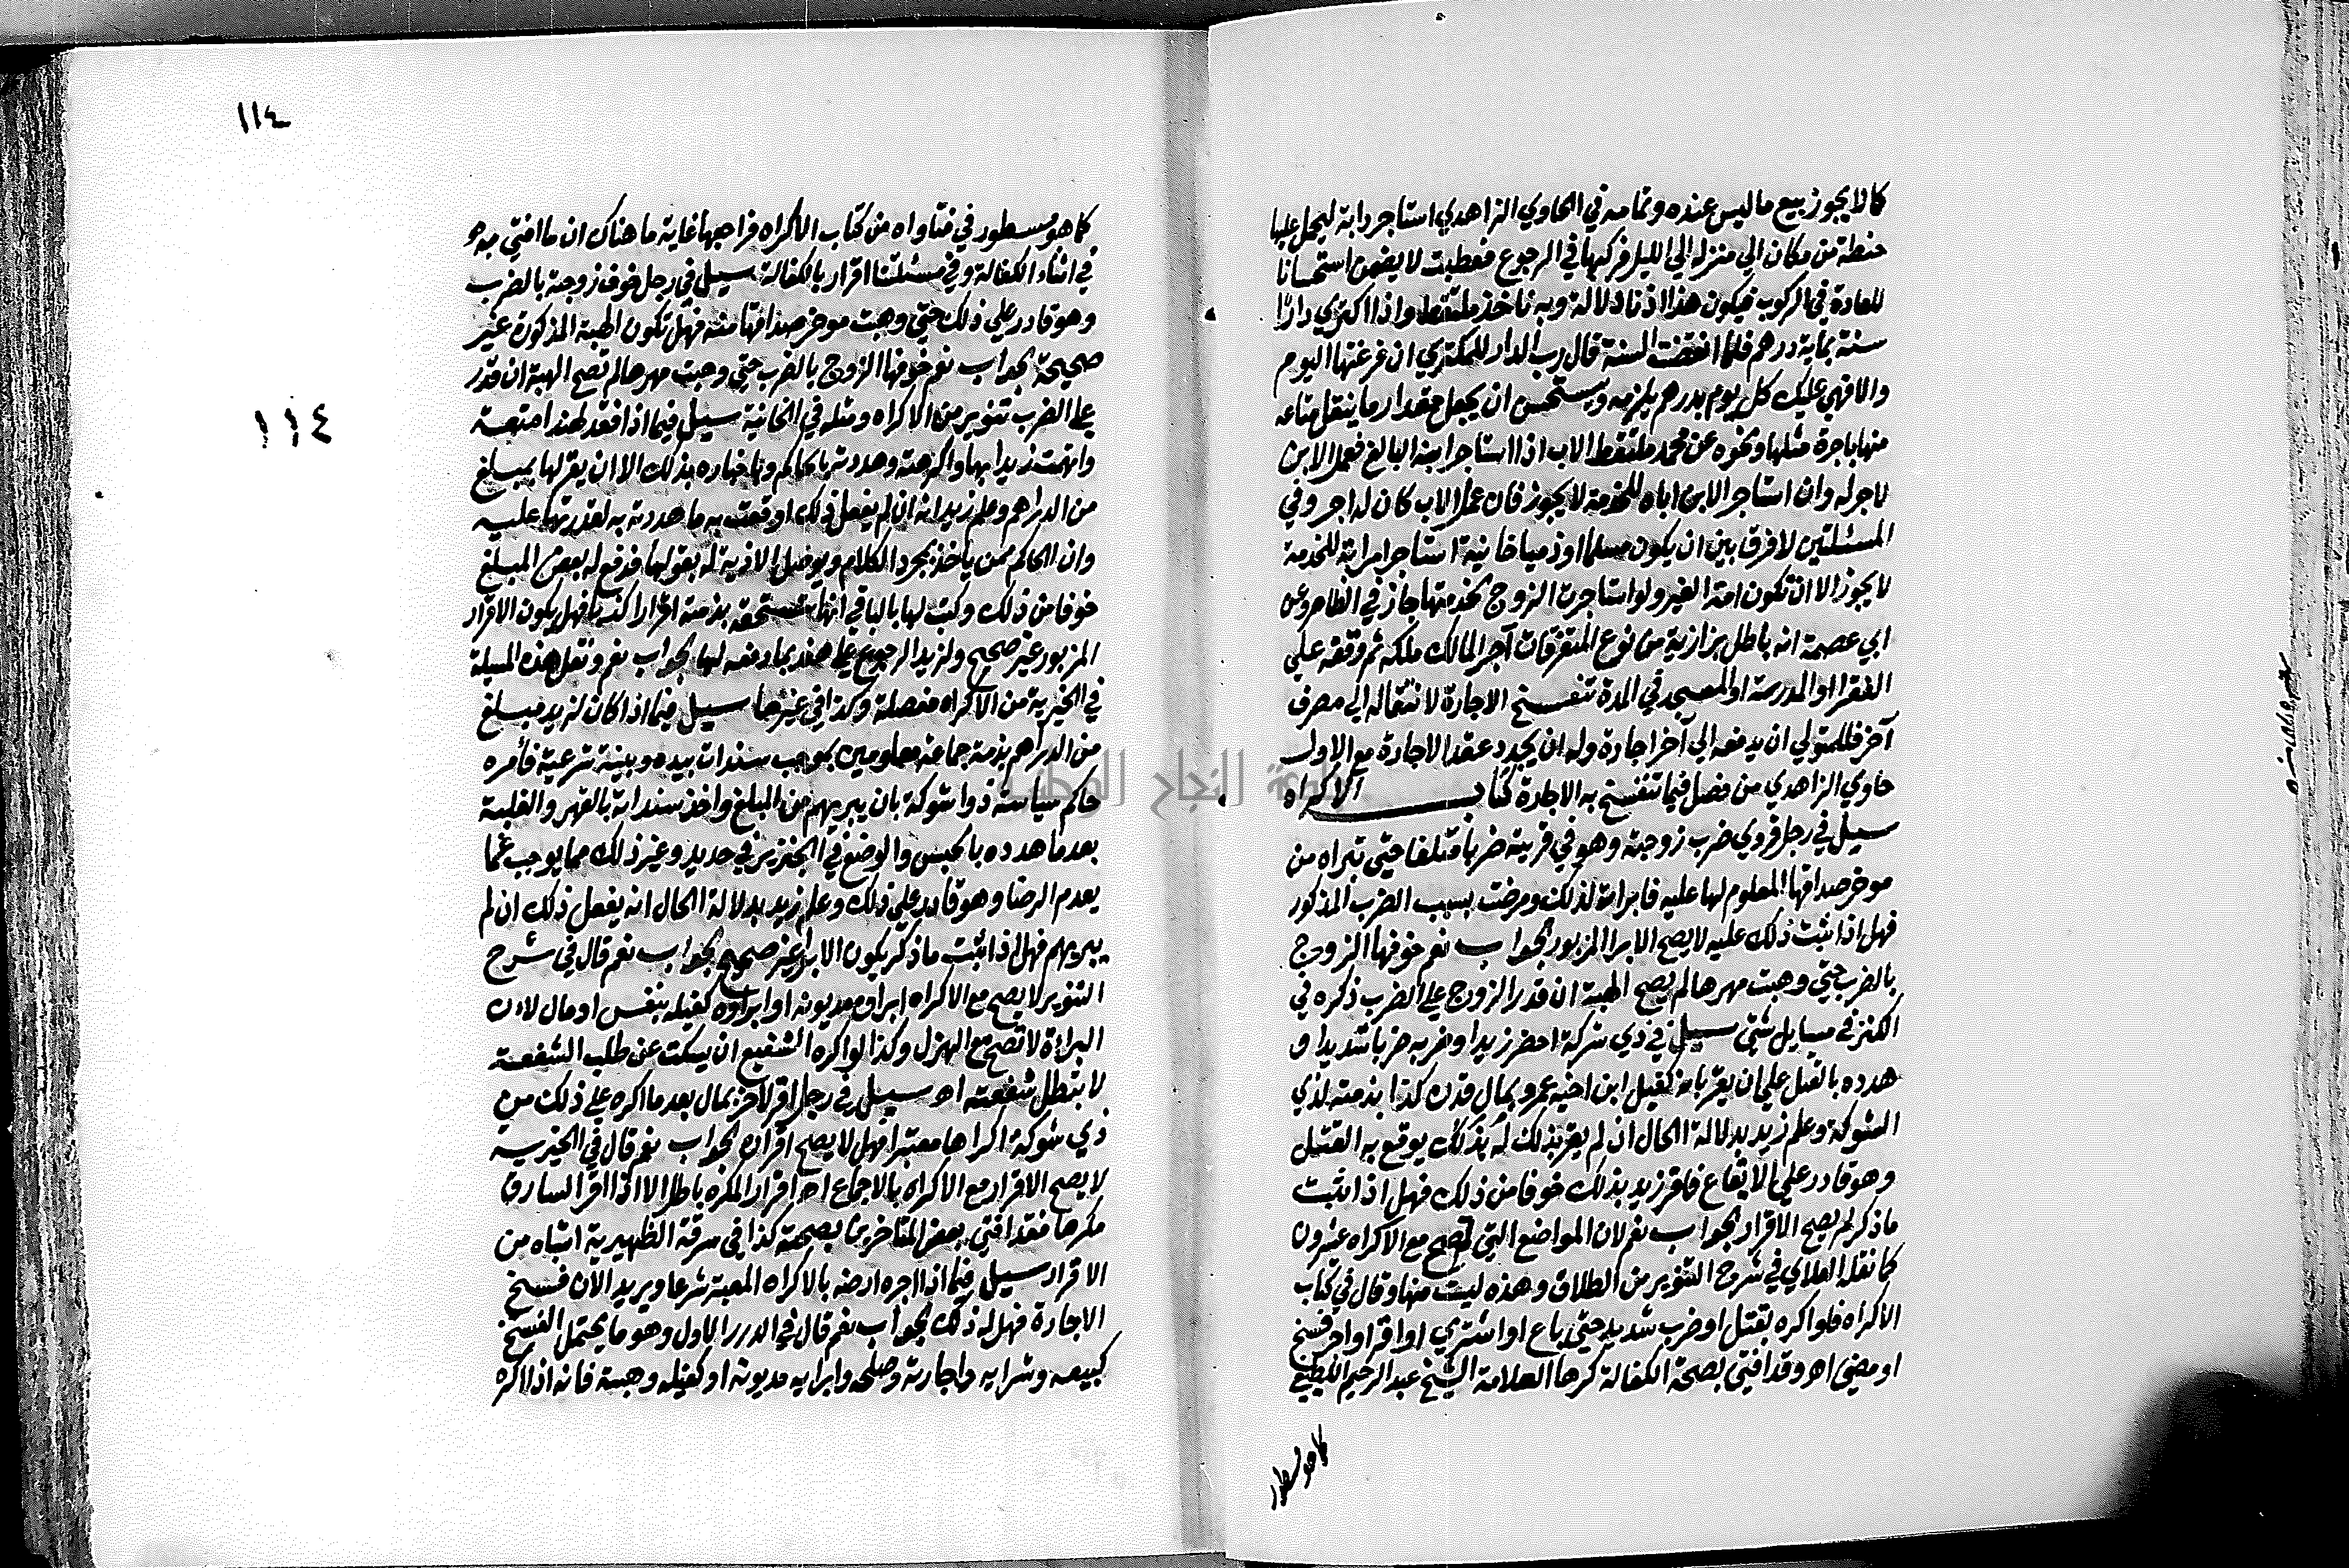 كما لا يجوز بيع ما ليس عنده وتمامه في الحاوي الزاهدي استاجر دابة ليحمل عليها
حنطة من مكان الي منزله الي الليل فركبها في الرجوع فعطبت لا يضمن استحسانا
للعادة في الركوب فيكون هذا اذنا دلالة وبه ناخذ ملتقط واذا اكتري دارا
سنة بماية درهم فلما انقضت السنة قال رب الدار للمكتري ان فرغتها اليوم
والا فهي عليك كل يوم بدرهم يلزمه ويستحسن ان يجعل مقدار ما ينقل متاعه
منها باجرة مثلها ونحوه عن محمد ملتقط الاب اذا استاجر ابنه البالغ فعمل الابن
لا اجر له وان استاجر الابن اباه للخدمة لا يجوز فان عمل الاب كان له اجر وفي
المسئلتين لا فرق بين ان يكون مسلما او ذميا خانية استاجر امراته للخدمة
لا يجوز الا ان تكون امة الغير ولو استاجرت الزوج لخدمتها جاز في الظاهر وعن
ابي عصمة انه باطل بزازية من نوع المتفرقات آجر المالك ملكه ثم وقفه علي
الفقرا او المدرسة او المسجد في المدة تنفسخ الاجارة لانتقاله الي مصرف
آخر فللمتولي ان يدفعه الي آخر اجارة وله ان يجدد عقد الاجارة مع الاول
حاوي الزاهدي من فصل فيما تنفسخ به الاجارة كتاب الاكراه
سيل في رجل قروي ضرب زوجته وهو في قريته ضربا متلفا حتي تبراه من
موخر صداقها المعلوم لها عليه فابراته لذلك ومرضت بسبب الضرب المذكور
فهل اذا ثبت ذلك عليه لا يصح الابرا المزبور الجواب نعم خوفها الزوج
بالضرب حتي وهبت مهرها لم يصح الهبة ان قدر الزوج علي الضرب ذكره في
الكنز في مسايل شتي سيل في ذي شوكة احضر زيدا وضربه ضربا شديدا و
هدده بالقتل علي ان يقر بانه كفيل ابن اخيه عمرو بمال قدره كذا بذمته لذي
الشوكة وعلم زيد بدلالة الحال ان لم يقر بذلك له بذلك يوقع به القتل
وهو قادر علي الايقاع فاقر زيد بذلك خوفا من ذلك فهل اذا ثبت
ما ذكر لم يصح الاقرار الجواب نعم لان المواضع التي تصح مع الاكراه عشرون
كما نقله العلاي في شرح التنوير من الطلاق وهذه ليست منها وقال في كتاب
الاكراه فلو اكره بقتل او ضرب شديد حتي باع او اشتري او اقر او اجر فسخ
او مضي اه وقد افتي بصحة الكفالة كرها العلامة الشيخ عبد الرحيم اللطفي
كما هو مسطور
١١٤
١١٤
كما هو مسطور في فتاواه من كتاب الاكراه فراجعها غاية ما هناك ان ما افتي به هو
في انشاء الكفالة وفي مسئلتنا اقرار بالكفالة سيل في رجل خوف زوجته بالضرب
وهو قادر علي ذلك حتي وهبت موخر صداقها منه فهل تكون الهبة المذكورة غير
صحيحة الجواب نعم خوفها الزوج بالضرب حتي وهبت مهرها لم تصح الهبة ان قدر
علي الضرب تنوير من الاكراه ومثله في الخانية سيل فيما اذا فقد لهند امتعة
واتهمت زيدا بها واكرهته وهددته بالحاكم وباخباره بذلك الا ان يقر لها بمبلغ
من الدراهم وعلم زيد انه ان لم يفعل ذلك اوقعت به ما هددته به لقدرتها عليه
وان الحاكم ممن ياخذ بمجرد الكلام ويوصل الاذية له بقولها فدفع له بعض المبلغ
خوفا من ذلك وكتب لها بالباقي انها تستحقه بذمته اقرارا كذبا فهل يكون الاقرار
المزبور غير صحيح ولزيد الرجوع علي هند بما دفعه لها الجواب نعم ونقل هذه المسيلة
في الخيرية من الاكراه مفصلة وكذا في غيرها سيل فيما اذا كان لزيد مبلغ
من الدراهم بذمة جماعة معلومين بموجب سندات بيده وبينة شرعية فأمره
حاكم سياسة ذو شوكة بان يبريهم من المبلغ واخذ سنداته بالقهر والغلبة
بعد ما هدده بالحبس والوضع في الجنزير في حديد وغير ذلك مما يوجب غما
يعدم الرضا وهو قادر علي ذلك وعلم زيد بدلالة الحال انه يفعل ذلك ان لم
يبريهم فهل اذا ثبت ما ذكر يكون الابراء غير صحيح الجواب نعم قال في شرح
التنوير لا يصح مع الاكراه ابراؤه مديونه او ابراؤه كفيله بنفس او مال لان
البراءة لا تصح مع الهزل وكذا لو اكره الشفيع ان يسكت عن طلب الشفعة
لا تبطل شفعته اه سيل في رجل اقر لآخر بمال بعد ما اكره علي ذلك من
ذي شوكة اكراها معتبرا فهل لا يصح اقراره الجواب نعم قال في الخيرية
لا يصح الاقرار مع الاكراه بالاجماع اه اقرار المكره باطل الا اذا اقر السارق
مكرها فقد افتي بعض المتاخرين بصحته كذا في سرقة الظهيرية اشباه من
الاقرار سيل فيما اذا اجره ارضه بالاكراه المعتبر شرعا ويريد الآن فسخ
الاجارة فهل له ذلك الجواب نعم قال في الدرر الاول وهو ما يحتمل الفسخ
كبيعه وشرايه واجارته وصلحه وابرايه مديونه او كفيله وهبته فانه اذا اكره
جامعة النجاح الوطنية